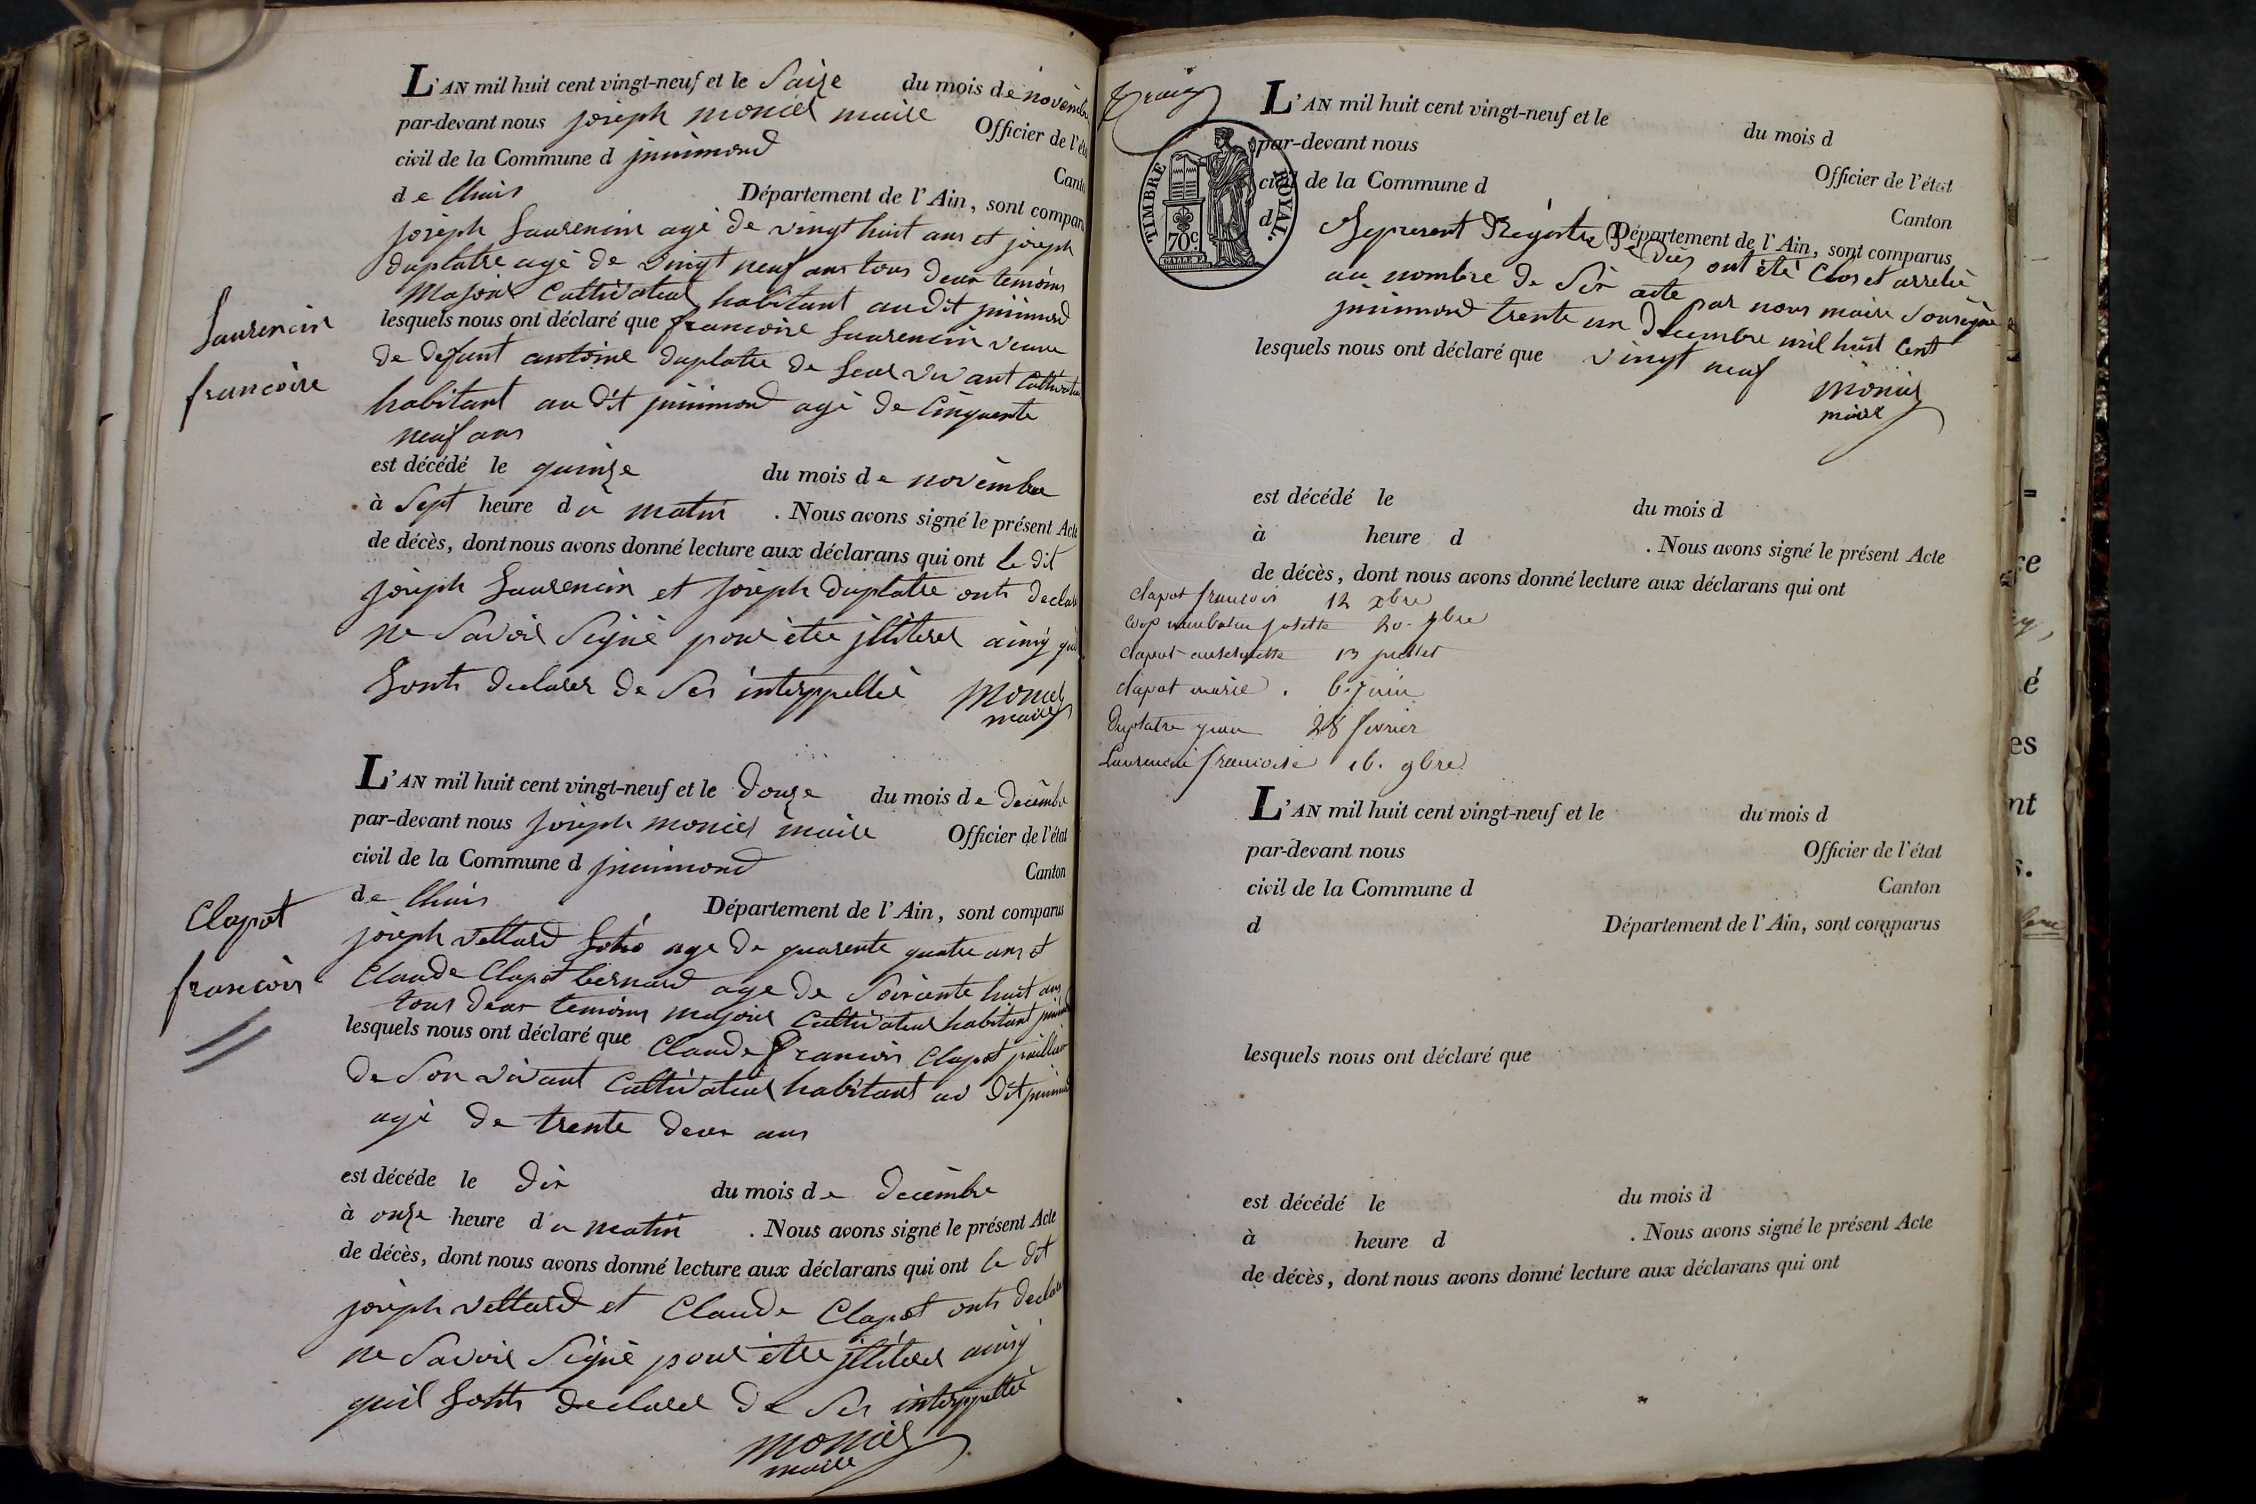 L'AN mil huit cent vingt-neuf et le Saize du mois de novembre
par-devant nous joseph monier maire Officier de l'éta
civil de la Commune d jnnimond Canto
de lhuis Département de l'Ain, sont compar
joseph Laurencin agé de vingt huit ans et joseph
duplatre agé de vingt neuf ans tous deux temoins
Majeur Cultivateur habitant audit jnnimond
lesquels nous ont déclaré que francoise Laurencin veuve
de defunt antoine duplatre de Son vivant Cultivateur
habitant au dit jnnimond agé de Cinquante
neuf ans
est décédé le quinze du mois de novembre
à Sept heure du matin . Nous avons signé le présent Acte
de décès, dont nous avons donné lecture aux déclarans qui ont le dit
joseph Laurencin et joseph duplatre onts declaré
ne Savoir Signé pour être jlliterer ainsy quil
Lonts declarer de Ser interppellér
Monier
maire
Laurencin
francoise
L'AN mil huit cent vingt-neuf et le douze du mois de decembre
par-devant nous joseph monier maire Officier de l'état
civil de la Commune d jnnimond Canton
de lhuis Département de l'Ain, sont comparus
joseph vettard age de quarente quatre ans et
Claude Clapot bernard age de Soixente huit ans
tous deux temoins majeur Cultivateur habitant
lesquels nous ont déclaré que Claude francois Clapot
de Son vivant Cultivateur habitant au dit jnnimond
agé de trente deux ans
est décédé le dix du mois de decembre
à onze heure du matin . Nous avons signé le présent Acte
de décès, dont nous avons donné lecture aux déclarans qui ont le dit
joseph vettard et Claude Clapot onts declaré
ne Savoir Signé pour être jlliterer ainsy
quil Lonts declarer de Ser interppellé
monier
maire
Clapot
francois
L'AN mil huit cent vingt-neuf et le du mois d
par-devant nous Officier de l'état
civil de la Commune d Canton
d Département de l'Ain, sont comparus
TIMBRE ROYAL.
70 c.
Le present Régistre ont été Clos et arreté
au nombre de Six acte par nous maire Sousigné
jnnimond trente un decembre mil huit Cent
lesquels nous ont déclaré que vingt neuf
monier
maire
est décédé le du mois d
à heure d . Nous avons signé le présent Acte
de décès, dont nous avons donné lecture aux déclarans qui ont
clapot francois 12 xbre
josette 20. 7bre
clapot 13 juillet
clapot marie . 6. juin
Duplatre 28 fevrier
Laurencin francoise 16. 9bre
L'AN mil huit cent vingt-neuf et le du mois d
par-devant nous Officier de l'état
civil de la Commune d Canton
d Département de l'Ain, sont comparus
lesquels nous ont déclaré que
est décédé le du mois d
à heure d . Nous avons signé le présent Acte
de décès, dont nous avons donné lecture aux déclarans qui ont